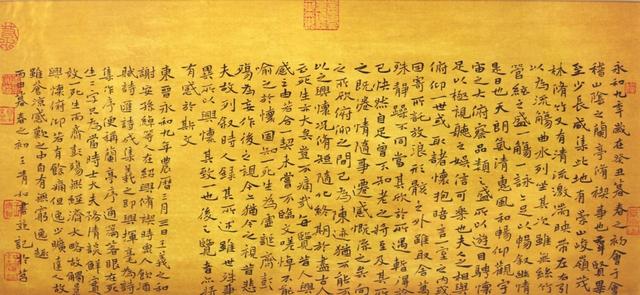 永和九年歲在癸丑暮春之初會于會
稽山陰之蘭亭脩禊事也羣賢畢
至少長咸集此地有崇山峻嶺茂
林脩竹又有清流激湍映帶左右引
以為流觴曲水列坐其次雖無絲竹
管絃之盛一觴一詠足以暢敘幽情
是日也天朗氣清惠風和暢仰觀宇
宙之大俯察品類之盛所以遊目騁懷
足以極視聽之娛信可樂也夫人之相與
俯仰一世或取諸懷抱晤言一室之內或
因寄所託放浪形骸之外雖取舍萬
殊靜躁不同當其欣於所遇暫得於
己快然自足曾不知老之將至及其所
之既惓情隨事遷感慨係之矣向
之所欣俯仰之間已為陳迹猶不能不
以之興懷況脩短隨化終期於盡古人
云死生亦大矣豈不痛哉每覽昔人興
感之由若合一契未嘗不臨文嗟悼不能
喻之於懷固知一死生為虛誕齊彭
殤為妄作後之視今亦猶今之視昔悲
夫故列敘時人錄其所述雖世殊事
異所以興懷其致一也後之覽者亦將
有感於斯文
東晉永和九年農曆三月三日王羲之和
謝安孫綽等人在紹興脩禊時眾人飲酒
賦詩匯詩成集羲之即興揮毫為詩
集作序便稱蘭亭序通篇着眼在死
生二字只為當時士大夫務清談鮮實效
故一死生而齊彭殤無經濟大略故觸景
興懷俯仰若有餘痛但逸少曠達之故
雖蒼涼感歎之中自有無窮逸趣
丙申暮春之初王青和書並記於